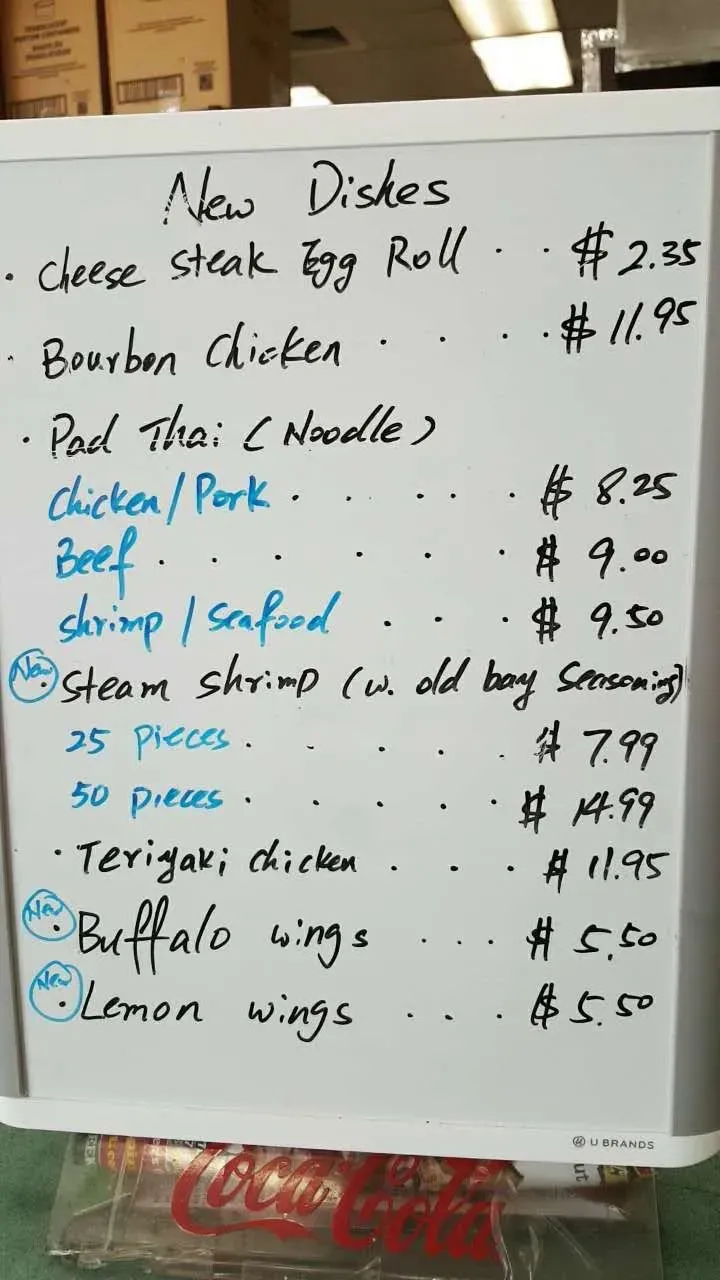 New Dishes
· Cheese Steak Egg Roll . . $ 2.35
· Bourbon Chicken . . . . $ 11.95
· Pad Thai (Noodle)
Chicken/Pork . . . . . $ 8.25
Beef . . . . . . $ 9.00
Shrimp / Seafood . . . $ 9.50
New · Steam shrimp (w. old bay Seasoning)
25 pieces . . . . . $ 7.99
50 pieces . . . . . $ 14.99
· Teriyaki chicken . . . $ 11.95
New · Buffalo wings . . . $ 5.50
New · Lemon wings . . . $ 5.50
U BRANDS
Coca-Cola